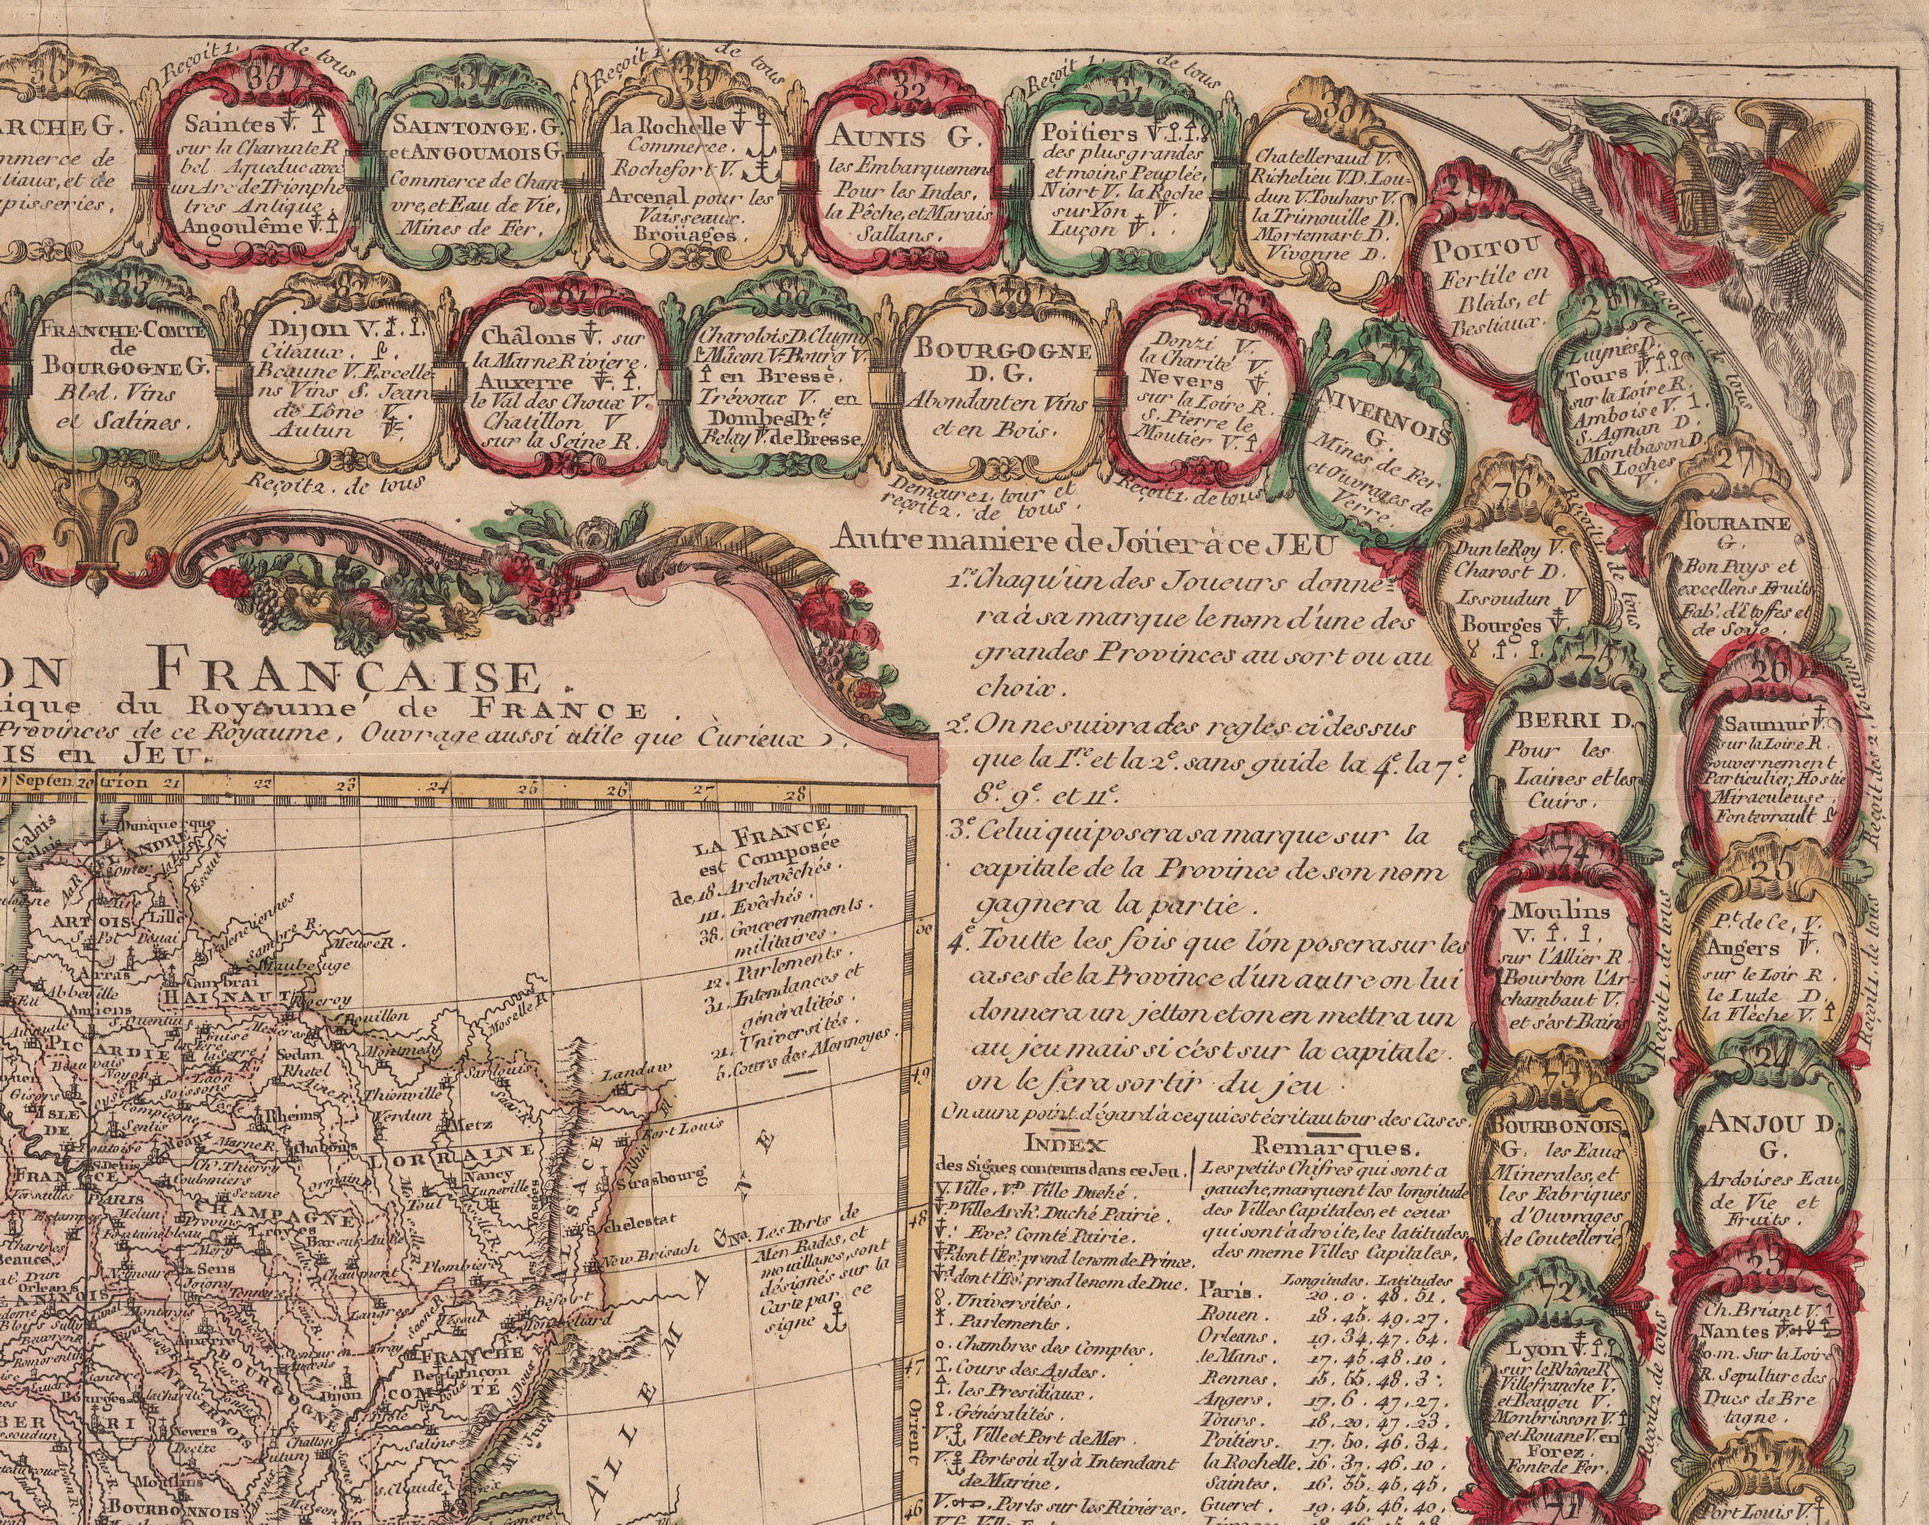 36
ARCHE G.
mmerce de
tiaux, et de
pisseries.
Reçoit 1. de tous
35
Saintes V.
sur la Charante R
bel Aqueduc avec
un Arc de Trionphe
tres Antique
Angoulême V.
34
SAINTONGE. G.
et ANGOUMOIS G
Commerce de Chan
vre, et Eau de Vie,
Mines de Fer.
Reçoit 1. de tous
33
la Rochelle V
Commerce.
Rochefort V.
Arcenal pour les
Vaisseaux.
Broüages.
32
AUNIS G.
les Embarquemens
Pour les Indes.
la Pêche, et Marais
Sallans.
Reçoit 1. de tous
31
Poitiers V.
des plus grandes
et moins Peuplée,
Niort V. la Roche
sur Yon V.
Luçon V.
30
Chatelleraud V.
Richelieu V.D. Lou-
dun V. Touhars V.
la Trimouille D.
Mortemart D.
Vivonne D.
29
POITOU
Fertile en
Bleds, et
Bestiaux.
28
Reçoit 1. de tous
Luynes D.
Tours V.
sur la Loire R.
Amboise V.
S. Agnan D.
Montbason D.
Loches
V.
27
TOURAINE
G.
Bon Pays et
excellens Fruits
Fab. d'Etoffes et
de Soye.
26
Saumur V.
sur la Loire R.
Gouvernement
Particulier, Hostie
Miraculeuse.
Fontevrault
Reçoit des 2 Voisins
25
Pt. de Ce, V.
Angers V.
sur le Loir R.
le Lude D
la Flêche V.
Reçoit 1. de tous
24
ANJOU D.
G.
Ardoises Eau
de Vie et
Fruits.
23
Ch. Briant V.
Nantes V.
o.m. Sur la Loire
R. Sepulture des
Ducs de Bre
tagne.
Port Louis V.
83
FRANCHE-COMTÉ
de
BOURGOGNE G.
Bled, Vins
et Salines.
82
Dijon V.
Citeaux.
Beaune V. Excelle-
ns Vins S. Jean
de Lône V.
Autun V.
Reçoit 2. de tous
81
Châlons V. sur
la Marne Riviere.
Auxerre V.
le Val des Choux V.
Chatillon V
sur la Seine R.
80
Charolois D. Clugny
Mâcon V. Bourg V.
en Bresse.
Trévoux V. en
Dombes Pté
Belay V. de Bresse
79
BOURGOGNE
D. G.
Abondant en Vins
et en Bois.
Demeure 1. tour et
reçoit 2. de tous.
78
Donzi V.
la Charité V.
Nevers V.
sur la Loire R.
S. Pierre le
Moutier V.
Reçoit 1. de tous
77
NIVERNOIS
G.
Mines de Fer
et Ouvrages de
Verre.
76
Dun le Roy V.
Charost D.
Issoudun V
Bourges V.
Reçoit 1. de tous
75
BERRI D.
Pour les
Laines et les
Cuirs.
74
Moulins
V.
sur l'Allier R.
Bourbon l'Ar-
chambaut V.
et s'est Bains
Reçoit 1. de tous
73
BOURBONOIS
G. les Eaux
Minerales, et
les Fabriques
d'Ouvrages
de Coutellerie
72
Lyon V.
sur le Rhône R
Villefranche V.
et Beaujeu V.
Monbrisson V.
et Rouane V. en
Forez.
Fonte de Fer.
Reçoit 2. de tous
71
ON FRANÇAISE.
ique du Royaume de FRANCE.
Provinces de ce Royaume, Ouvrage aussi utile que Curieux.
IS en JEU.
Autre maniere de Joüer à ce JEU
1re. Chaqu'un des Joueurs donne=
ra à sa marque le nom d'une des
grandes Provinces au sort ou au
choix.
2e. On ne suivra des regles ci dessus
que la 1re. et la 2e. sans guide la 4e. la 7e.
8e. 9e. et 11e.
3e. Celui qui posera sa marque sur la
capitale de la Province de son nom
gagnera la partie.
4e. Toutte les fois que l'on posera sur les
cases de la Province d'un autre on lui
donnera un jetton et on en mettra un
au jeu mais si c'est sur la capitale.
on le fera sortir du jeu
On aura point d'égard à ce qui est écrit au tour des Cases.
INDEX
des Signes contenus dans ce Jeu.
V. Ville, V.D. Ville Duché.
Ville Arch. Duché Pairie.
Evé. Comté Pairie.
dont l'Ev. prend le nom de Prince.
dont l'Ev. prend le nom de Duc.
Universités.
Parlements.
o. Chambres des Comptes.
Cours des Aydes.
les Presidiaux.
Généralités.
V. Ville et Port de Mer.
V. Ports ou il y à Intendant
de Marine.
V. Ports sur les Rivières.
Remarques.
Les petits Chifres qui sont a
gauche, marquent les longitude
des Villes Capitales, et ceux
qui sont à droite, les latitudes
des meme Villes Capitales.
Longitudes. Latitudes
Paris. 20. 0. 48. 51.
Rouen. 18. 45. 49. 27.
Orleans. 19. 34. 47. 54.
le Mans. 17. 45. 48. 10.
Rennes. 15. 55. 48. 3.
Angers. 17. 6. 47. 27.
Tours. 18. 20. 47. 23.
Poitiers. 17. 50. 46. 34.
la Rochelle. 16. 37. 46. 10.
Saintes. 16. 55. 45. 45.
Gueret. 19. 45. 46. 40.
Septen 20 trion 21 22 23 24 25 26 27 28
LA FRANCE
est Composée
de, 18. Archevêchés.
111. Evêchés.
38. Gouvernements
militaires.
12. Parlements.
31. Intendances et
généralités.
21. Universités.
5. Cours des Monnoyes.
Na. Les Ports de
Mer, Rades, et
mouillages, sont
désignés sur la
Carte par ce
signe
50
49
48
47
Orient
46
ALLEMAGNE
Calais
Dunquerque
FLANDRE
Omer
Aire
Lille
ARTOIS
S. Pol
Douai
Arras
Valenciennes
Sambre R.
Meuse R.
Maubeuge
Cambrai
HAINAUT
Abbeville
Amiens
S. Quentin
Rocroy
Bouillon
PICARDIE
Guise
Mezieres
Sedan
Montmedy
Moselle R.
Noyon
Laon
Rhetel
Soissons
Thionville
Sarlouis
Saar R.
Landaw
ISLE
DE
FRANCE
Compiegne
Senlis
Rheims
Verdun
Metz
Fort Louis
Meaux
Marne R.
Chalons
LORRAINE
Rhin
Strasbourg
Pontoise
S. Denis
Ch. Thierry
Coulomiers
PARIS
Sezane
Nancy
Luneville
Toul
Vosges
ALSACE
Versailles
Melun
CHAMPAGNE
Provins
Troyes
Bar sur Aube
Schelestat
Fontainebleau
Chartres
Beauce
Sens
Joigny
Chaumont
Plombiere
New Brisach
Orleans
Montargis
Langres
Vesoul
Béfort
Montbéliard
Auxerre
BOURGOGNE
Gray
FRANCHE
COMTÉ
Besançon
Dijon
Dole
Doubs R.
Bourges
la Charité
NIVERNOIS
BERRI
Nevers
Decize
Challon
Autun
Salins
Mt. Jura
Moulins
BOURBONNOIS
Macon
S. Claude
Geneve